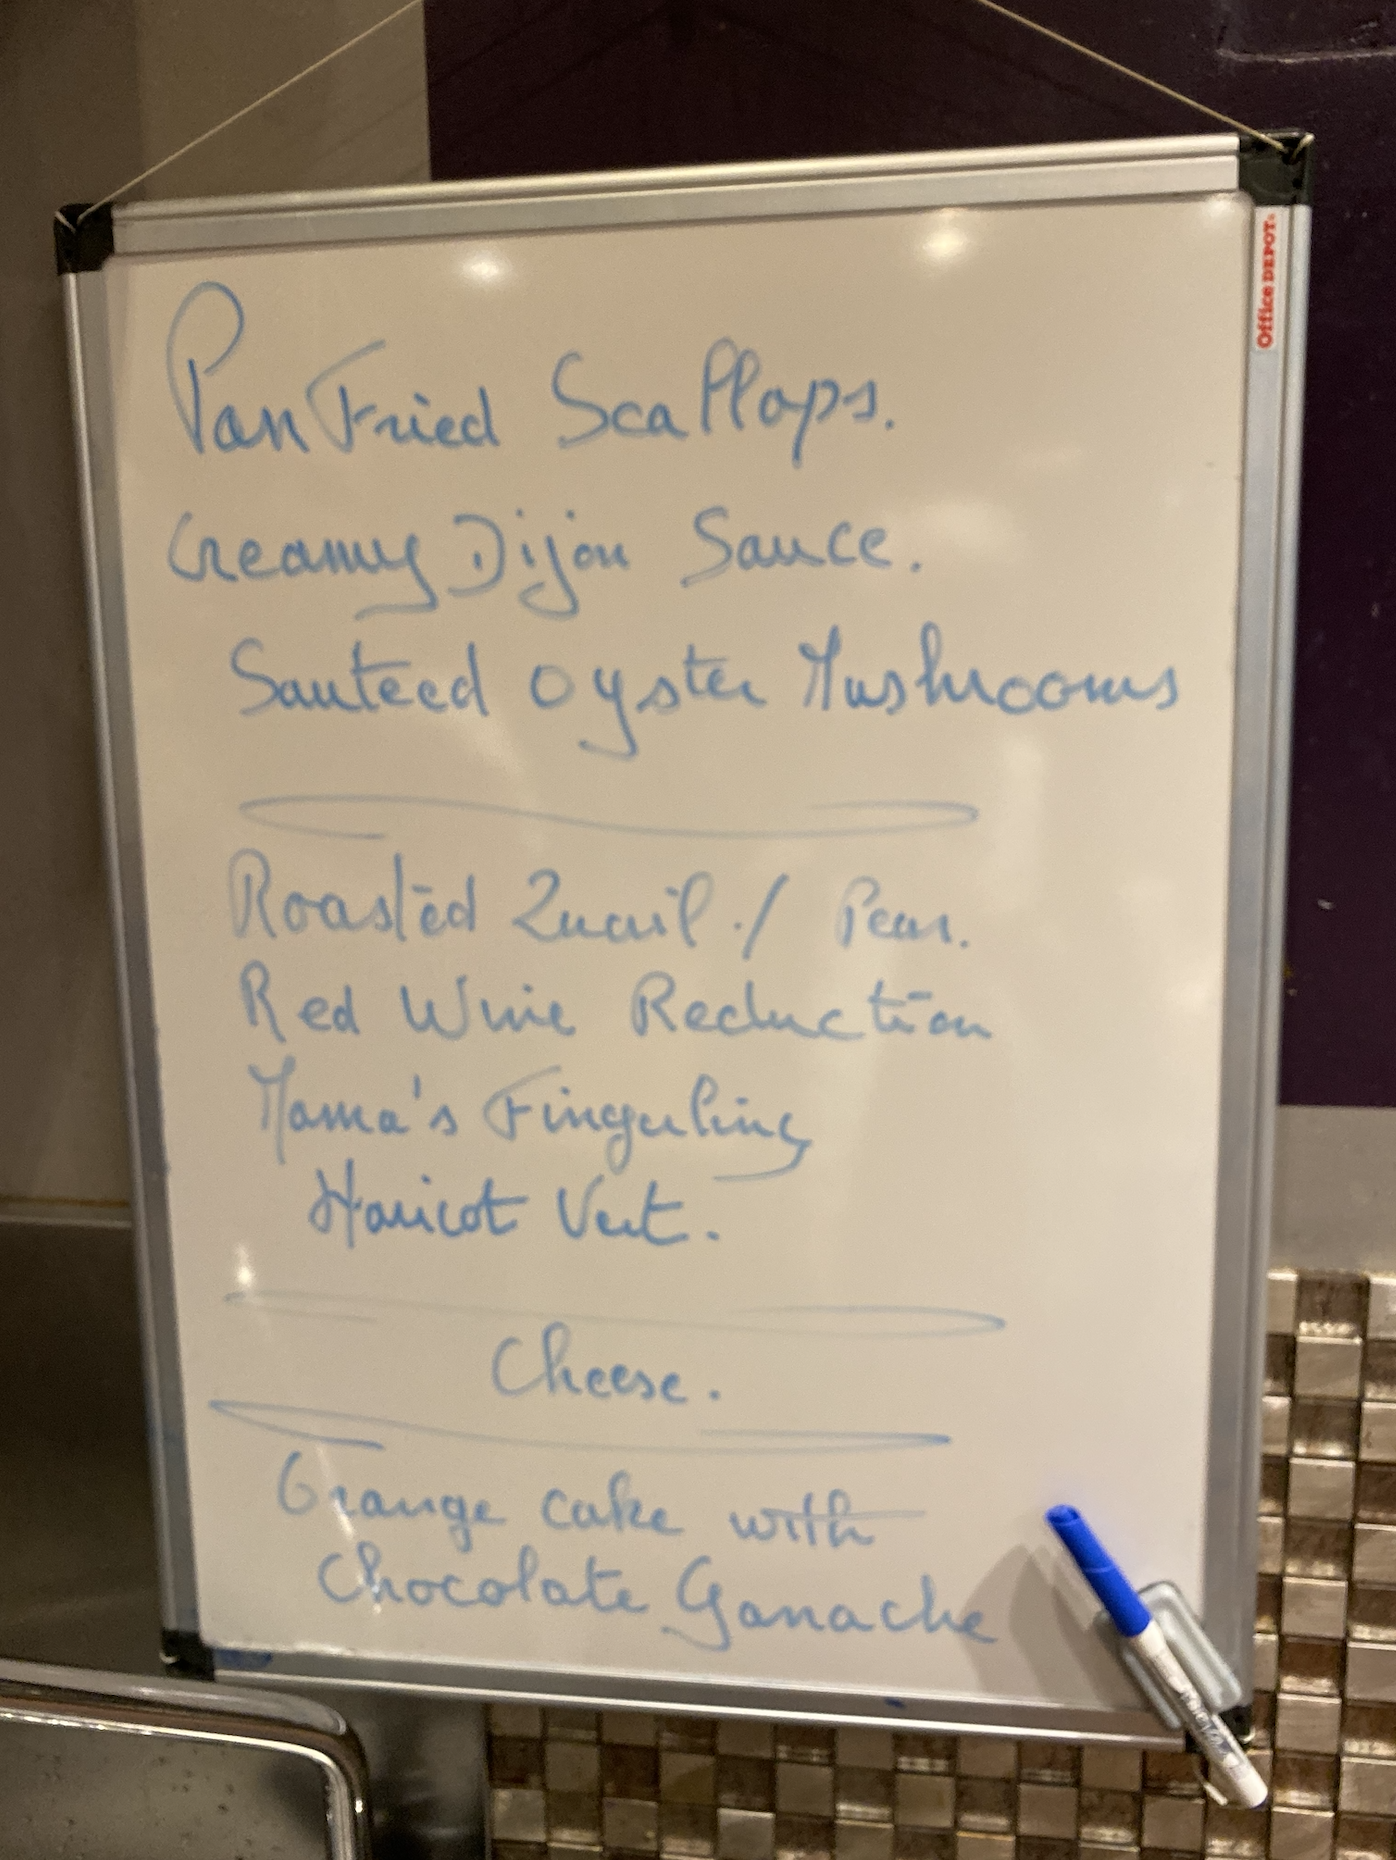 Pan Fried Scallops.
Creamy Dijon Sauce.
Sauteed Oyster Mushrooms
Roasted Quail ./ Pear.
Red Wine Reduction
Mama's Fingerling
Haricot Vert.
Cheese.
Orange cake with
Chocolate Ganache
Office DEPOT